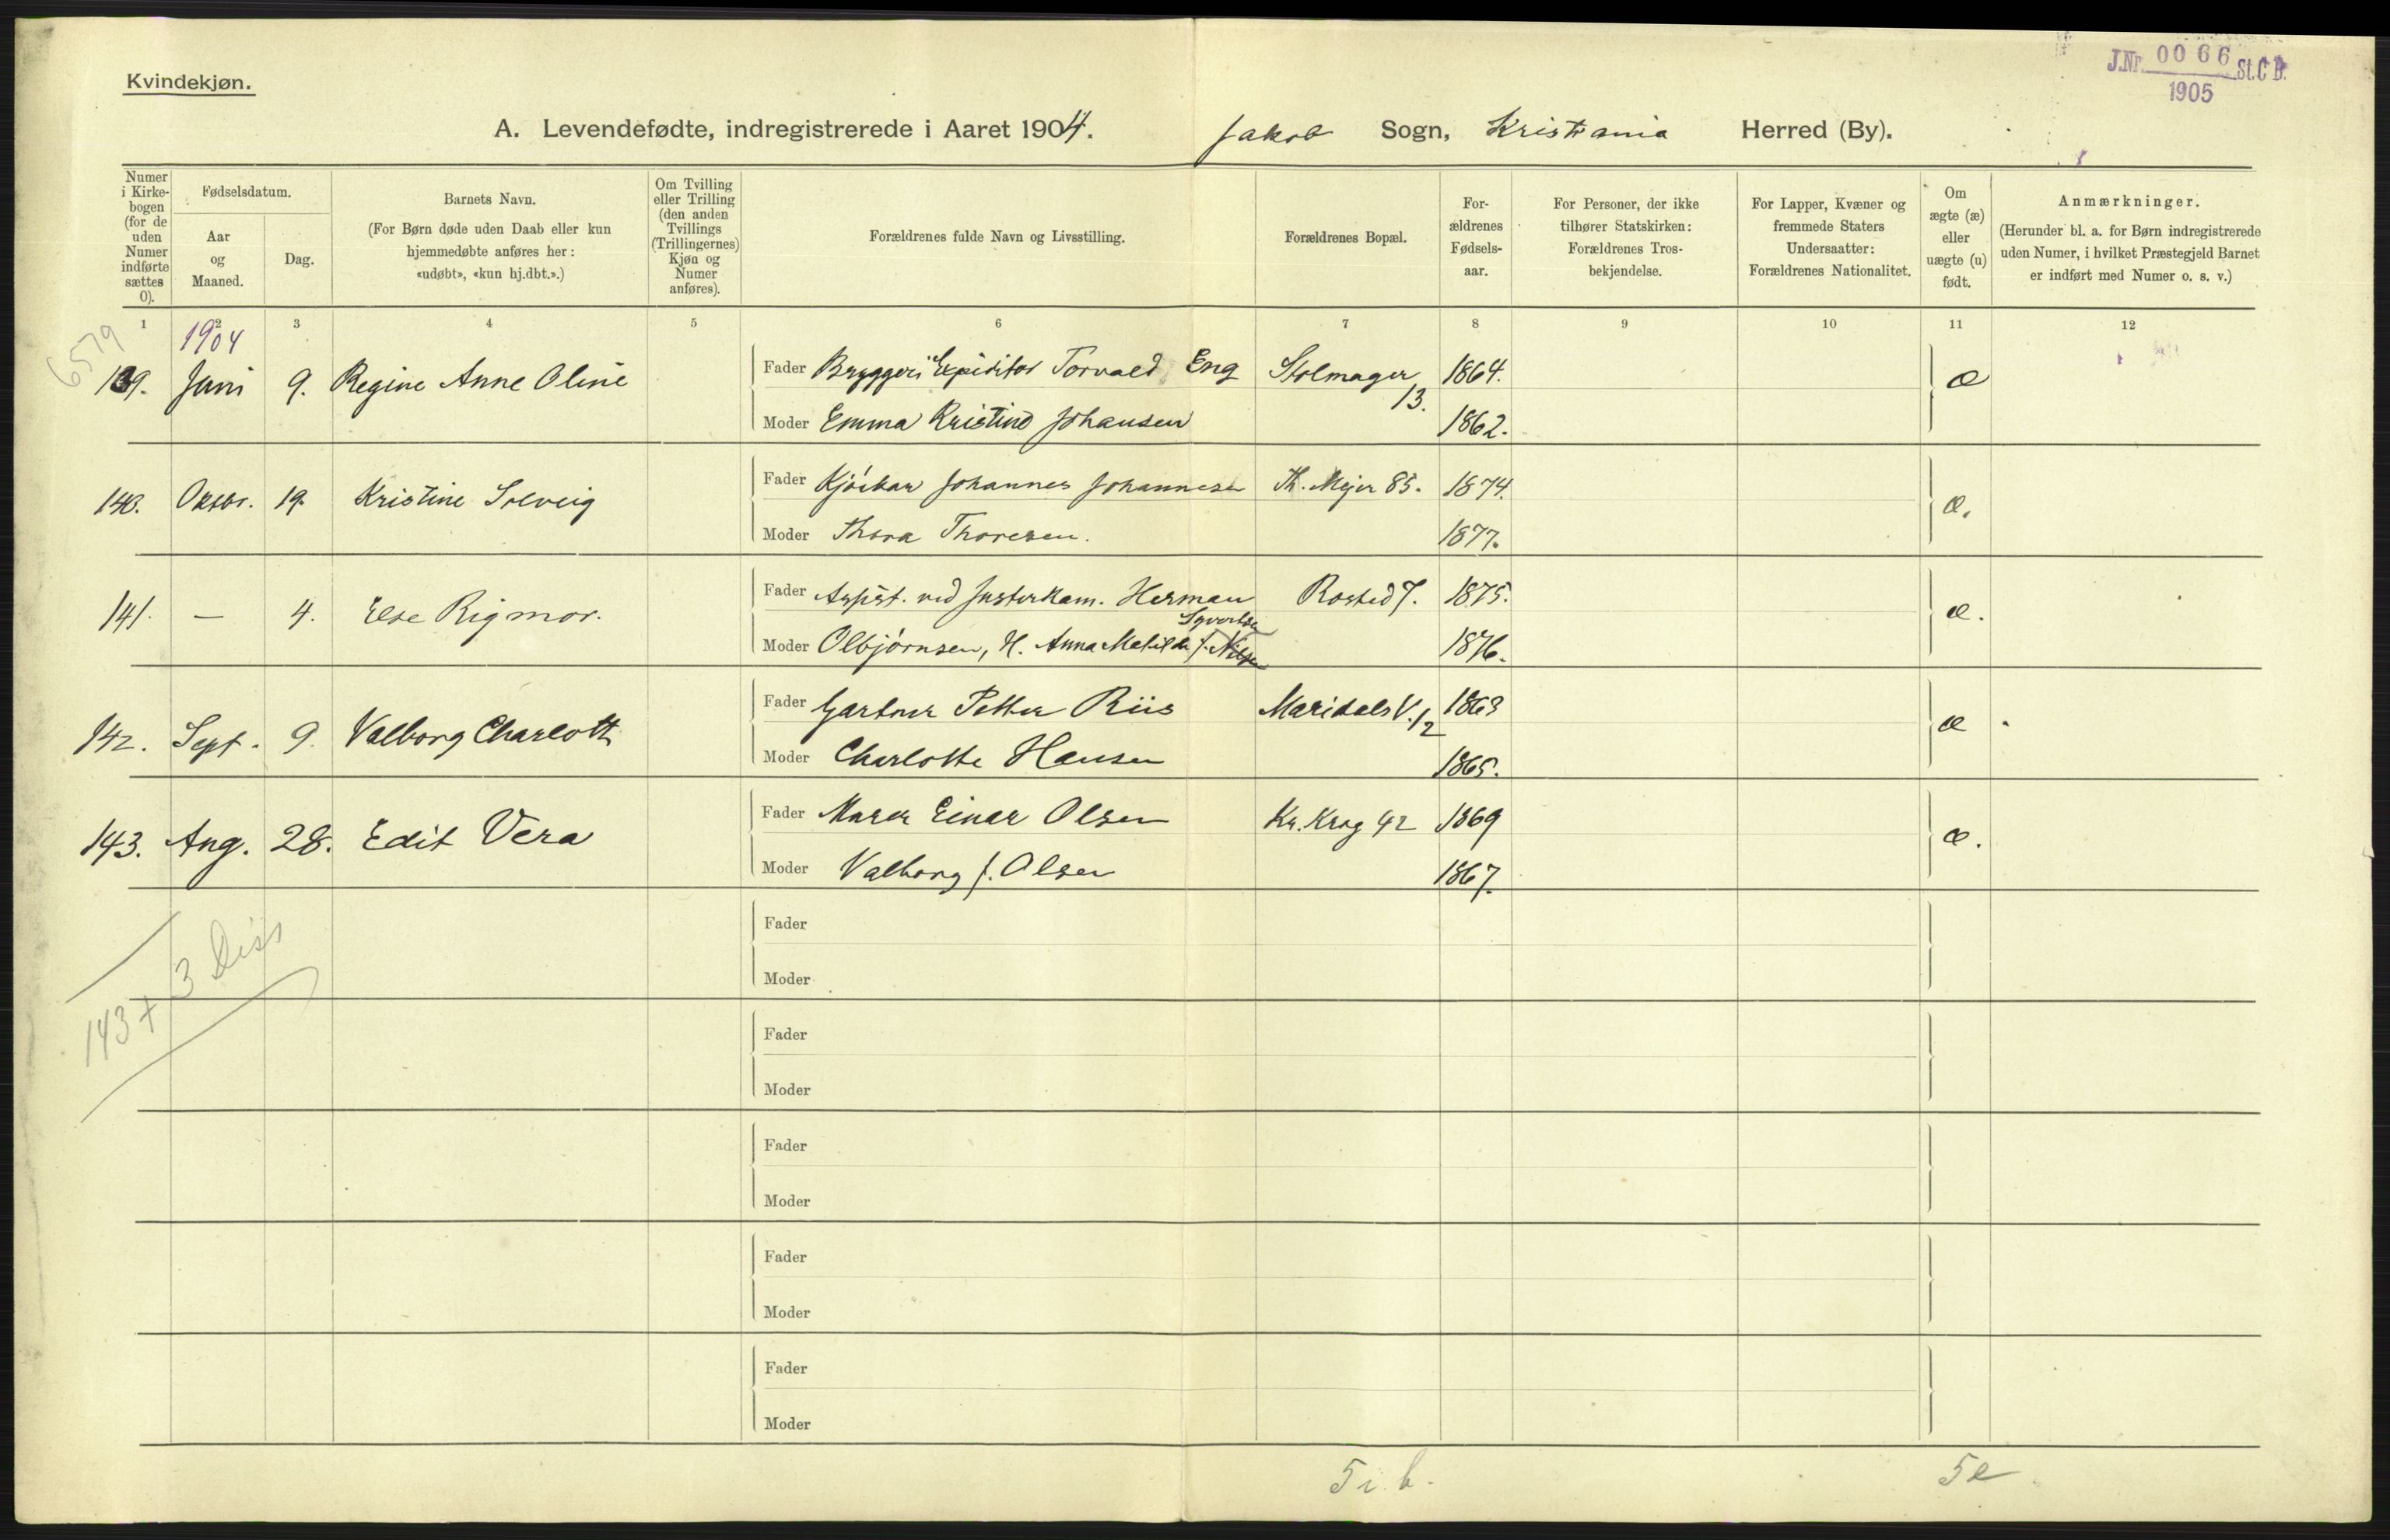 Kvindekjøn.
J.Nr. 0066 St.C B.
1905
A. Levendefødte, indregistrerede i Aaret 1904. Jakob Sogn, Kristiania Herred (By).
Numer i Kirkebogen (for de uden Numer indførte sættes 0).
Fødselsdatum.
Aar og Maaned.
Dag.
Barnets Navn.
(For Børn døde uden Daab eller kun hjemmedøbte anføres her: «udøbt», «kun hj.dbt.».)
Om Tvilling eller Trilling (den anden Tvillings (Trillingernes) Kjøn og Numer anføres).
Forældrenes fulde Navn og Livsstilling.
Forældrenes Bopæl.
Forældrenes Fødselsaar.
For Personer, der ikke tilhører Statskirken: Forældrenes Trosbekjendelse.
For Lapper, Kvæner og fremmede Staters Undersaatter: Forældrenes Nationalitet.
Om ægte (æ) eller uægte (u) født.
Anmærkninger.
(Herunder bl. a. for Børn indregistrerede uden Numer, i hvilket Præstegjeld Barnet er indført med Numer o. s. v.)
1 2 3 4 5 6 7 8 9 10 11 12
6579
1904
139. Juni 9. Regine Anne Oline Fader Bryggeri Expiditør Torvald Eng Stolmager 13. 1864. æ
Moder Emma Kristine Johansen 1862.
140. Oktbr. 19. Kristine Solveig Fader Kjørekar Johannes Johannesen Th. Mejer 85. 1874. æ.
Moder Thora Thoresen. 1877.
141. — 4. Else Rigmor. Fader Assist. ved Justerkam. Herman Rosted 7. 1875. æ.
Syvertsen
Moder Olbjørnsen, H. Anna Matilde f. Nilsen 1876.
142. Sept. 9. Valborg Charlotte Fader Gartner Petter Riis Maridals V. 12 1863 æ
Moder Charlotte Hansen 1865.
143. Aug. 28. Edit Vera Fader Murer Einar Olsen Kr. Krog 42 1869 æ.
Moder Valborg f. Olsen 1867.
143 + 3 Diss
Fader
Moder
Fader
Moder
Fader
Moder
Fader
Moder
Fader
Moder
5 i b. 5 e